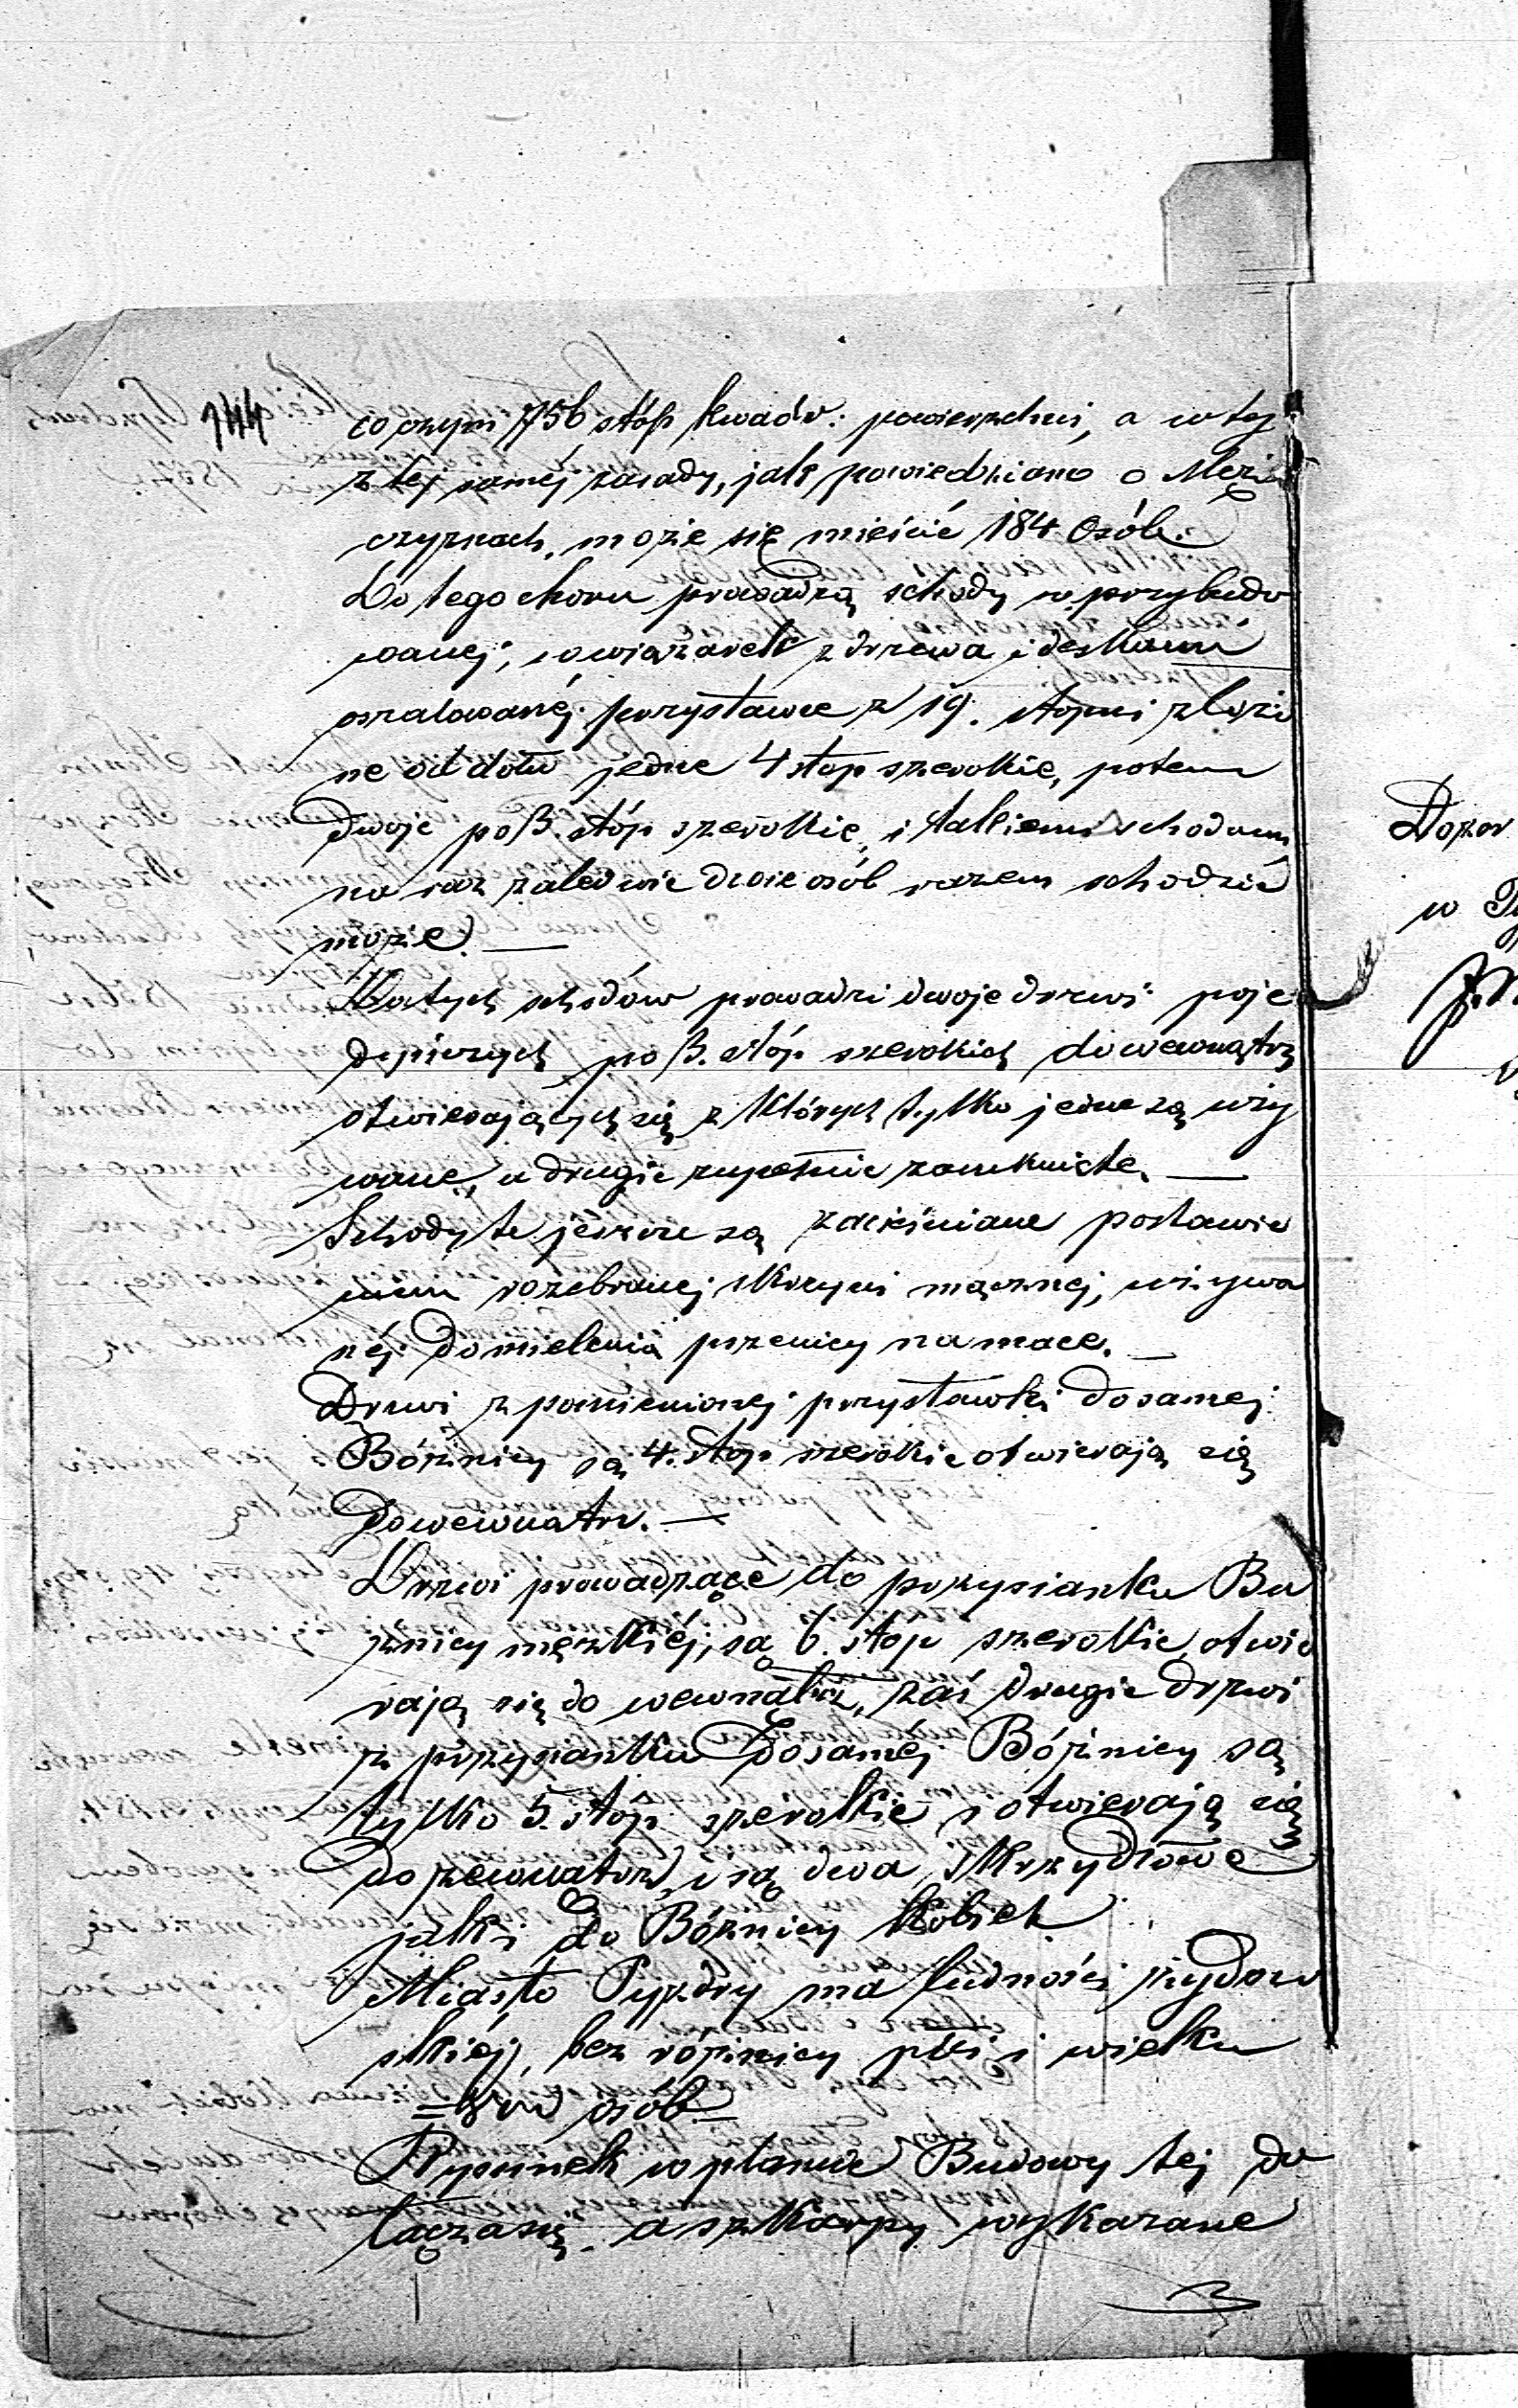 144
co czyni 756 stóp kwadr: powierzchni, a w tej
z tej samej zasady, jak powiedziano o Męż
czyznach, może się mieścić 184 Osób.
Do tego choru prowadzą schody w przybudo
wanej, w wiązarek z drzewa i deskami
oszalowanéj przystawce z 19. stopni złożo
ne od dołu jedne 4 stop szerokie, potem
dwoje po 3. stóp szerokie, i takiemi schodami
na raz zaledwie dwie osób razem schodzić
może. —
Do tych schodów prowadzi dwoje drzwi poje
dyńczych po 3. stóp szerokich do wewnątrz
otwierających się z których tylko jedne są uży
wane, a drugie zupełnie zamknięte. —
Schody te jeszcze są zacieśniane postawie
niem rozebranej skrzyni mącznej, używa
néj do mielenia pszenicy na mace. —
Drzwi z pomienionej przystawki do samej
Bóżnicy są 4. stop szerokie otwierają się
do wewnątrz. —
Drzwi prowadzące do przysianku Bu
żnicy męzkiéj, są 6. stop szerokie, otwie
rają się do wewnątrz, zaś drugie drzwi
z przysianku do samej Bóżnicy są
tylko 5. stóp szerokie i otwierają się
do zewnatrz, i są dwa skrzydłowe
jak i do Bóżnicy Kobiet.
Miasto Pyzdry ma ludności żydow
skiéj, bez różnicy płci i wieku
osób. —
Rysunek w planie Budowy tej do
łącza się a szkarpy wykazane
Dozor
w